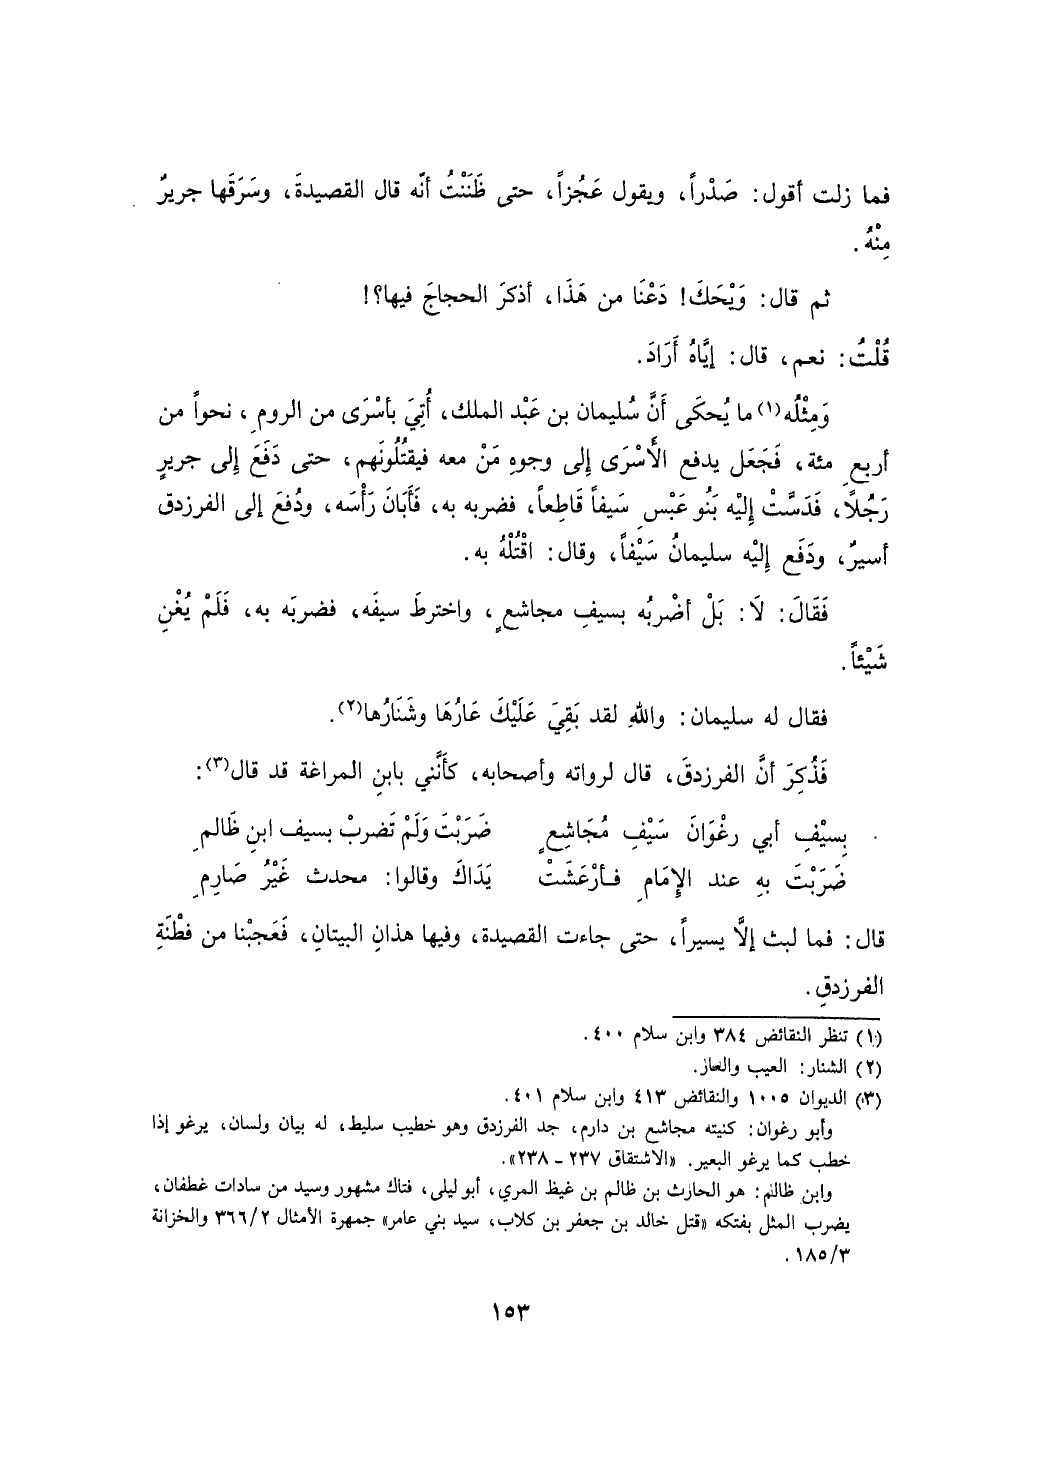 فما زلت أقول: صَدْراً، ويقول عَجُزاً، حتى ظَنَنْتُ أنّه قال القصيدةَ، وسَرَقَها جريرٌ
مِنْهُ.
ثم قال: وَيْحَكَ! دَعْنَا من هَذَا، أذكرَ الحجاجَ فيها؟!
قُلْتُ: نعم، قال: إيَّاهُ أَرَادَ.
وَمِثْلُه(١) ما يُحكَى أَنَّ سُليمان بن عَبْد الملك، أُتِيَ بأسْرَى من الرومِ، نحواً من
أربعِ مئة، فَجَعَل يدفع الأَسْرَى إلى وجوهِ مَنْ معه فيقتُلُونَهم، حتى دَفَعَ إلى جريرٍ
رَجُلاً، فَدَسَّتْ إِليْه بَنُو عَبْسٍ سَيفاً قَاطِعاً، فضربه به، فَأَبَانَ رَأْسَه، ودُفعَ إلى الفرزدق
أسيرٌ، ودَفَع إِليْه سليمانُ سَيْفاً، وقال: اقْتُلْهُ به.
فَقَالَ: لَا: بَلْ أضْربُه بسيفِ مجاشعٍ، واخترطَ سيفَه، فضربَه به، فَلَمْ يُغْنِ
شَيْئاً.
فقال له سليمان: واللهِ لقد بَقِيَ عَلَيْكَ عَارُهَا وشَنَارُها(٢).
فَذُكِرَ أنَّ الفرزدقَ، قال لرواته وأصحابه، كأَنَّني بابنِ المراغة قد قال(٣):
بِسيْفِ أبي رغْوَانَ سَيْفِ مُجَاشِعٍ ضَرَبْتَ وَلَمْ تَضربْ بسيف ابنِ ظَالمِ
ضَرَبْتَ بهِ عند الإِمَامِ فأرْعَشَتْ يَدَاكَ وقالوا: محدث غَيْرُ صَارِمِ
قال: فما لبث إلَّا يسيراً، حتى جاءت القصيدة، وفيها هذانِ البيتانِ، فَعَجبْنا من فطْنَةِ
الفرزدقِ.
(١) تنظر النقائض ٣٨٤ وابن سلام ٤٠٠.
(٢) الشنار: العيب والعار.
(٣) الديوان ١٠٠٥ والنقائض ٤١٣ وابن سلام ٤٠١.
وأبو رغوان: كنيته مجاشع بن دارم، جد الفرزدق وهو خطيب سليط، له بيان ولسان، يرغو إذا
خطب كما يرغو البعير. «الاشتقاق ٢٣٧ - ٢٣٨».
وابن ظالم: هو الحارث بن ظالم بن غيظ المري، أبو ليلى، فتاك مشهور وسيد من سادات غطفان،
يضرب المثل بفتكه «قتل خالد بن جعفر بن كلاب، سيد بني عامر» جمهرة الأمثال ٣٦٦/٢ والخزانة
١٨٥/٣.
١٥٣